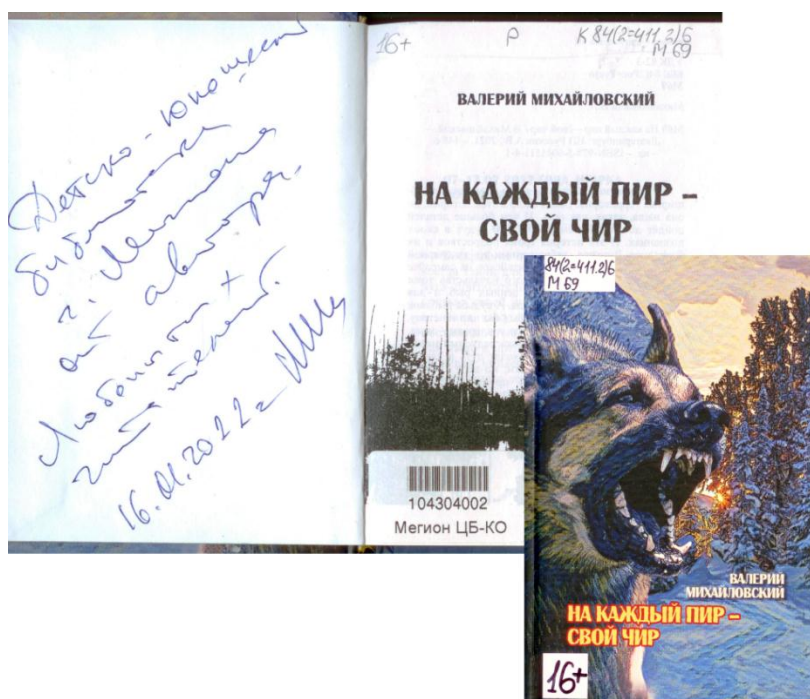 Детско-юношеской
библиотеке
г. Мегиона
от автора.
Любопытных
читателей.
16.01.2022 г.
16+
Р
К 84(2=411.2)6
М 69
ВАЛЕРИЙ МИХАЙЛОВСКИЙ
НА КАЖДЫЙ ПИР –
СВОЙ ЧИР
104304002
Мегион ЦБ-КО
84(2=411.2)6
М 69
ВАЛЕРИЙ
МИХАЙЛОВСКИЙ
НА КАЖДЫЙ ПИР –
СВОЙ ЧИР
16+